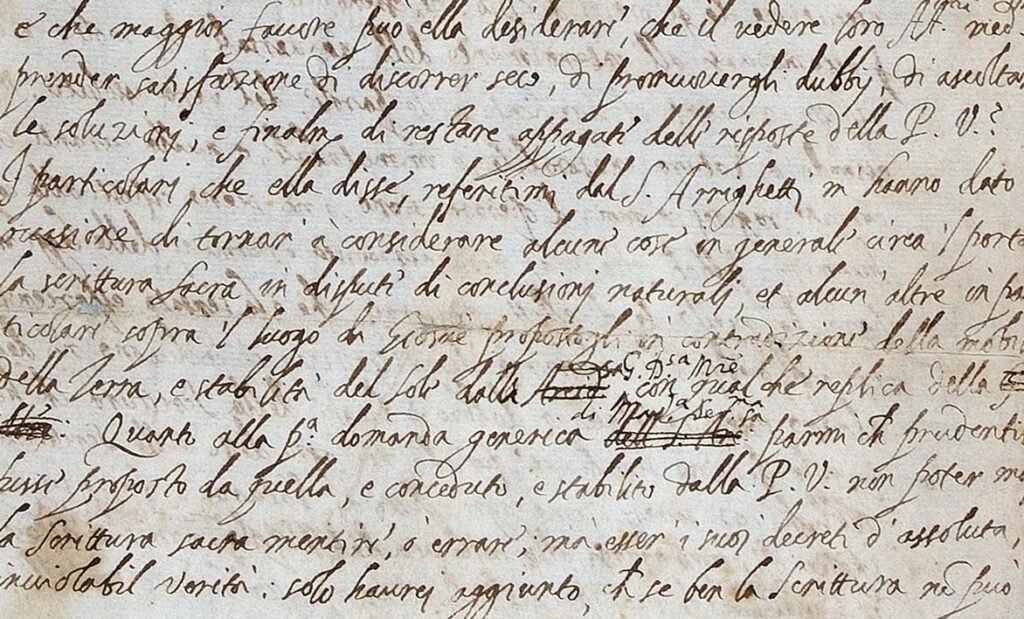 e che maggior favore può ella desiderare, che il vedere loro Att.
prender satisfazione di discorrer seco, di promuovergli dubbij, di ascoltar
le soluzioni, e finalm. di restare appagati delle risposte della P. V.?
I particolari che ella disse, referitimi dal S. Arrighetti m hanno dato
occasione di tornar à considerare alcune cose in generale circa 'l porta
la scrittura sacra in dispute di conclusioni naturali, et alcun' altre in pa
ticolare sopra 'l luogo di Giosuè propostogli in contradizione della mobi
della Terra, e stabilità del Sole dalla G. D.sa M.re con qualche replica della
di M. Ser.ma
Quanto alla p.a domanda generica parmi ch prudenti
fussi proposto da quella, e conceduto, e stabilito dalla P. V. non poter m
la Scrittura sacra mentire, ò errare, ma esser i suoi decreti d' assoluta,
inviolabil verità: solo haurei aggiunto, ch se ben la Scrittura nō può